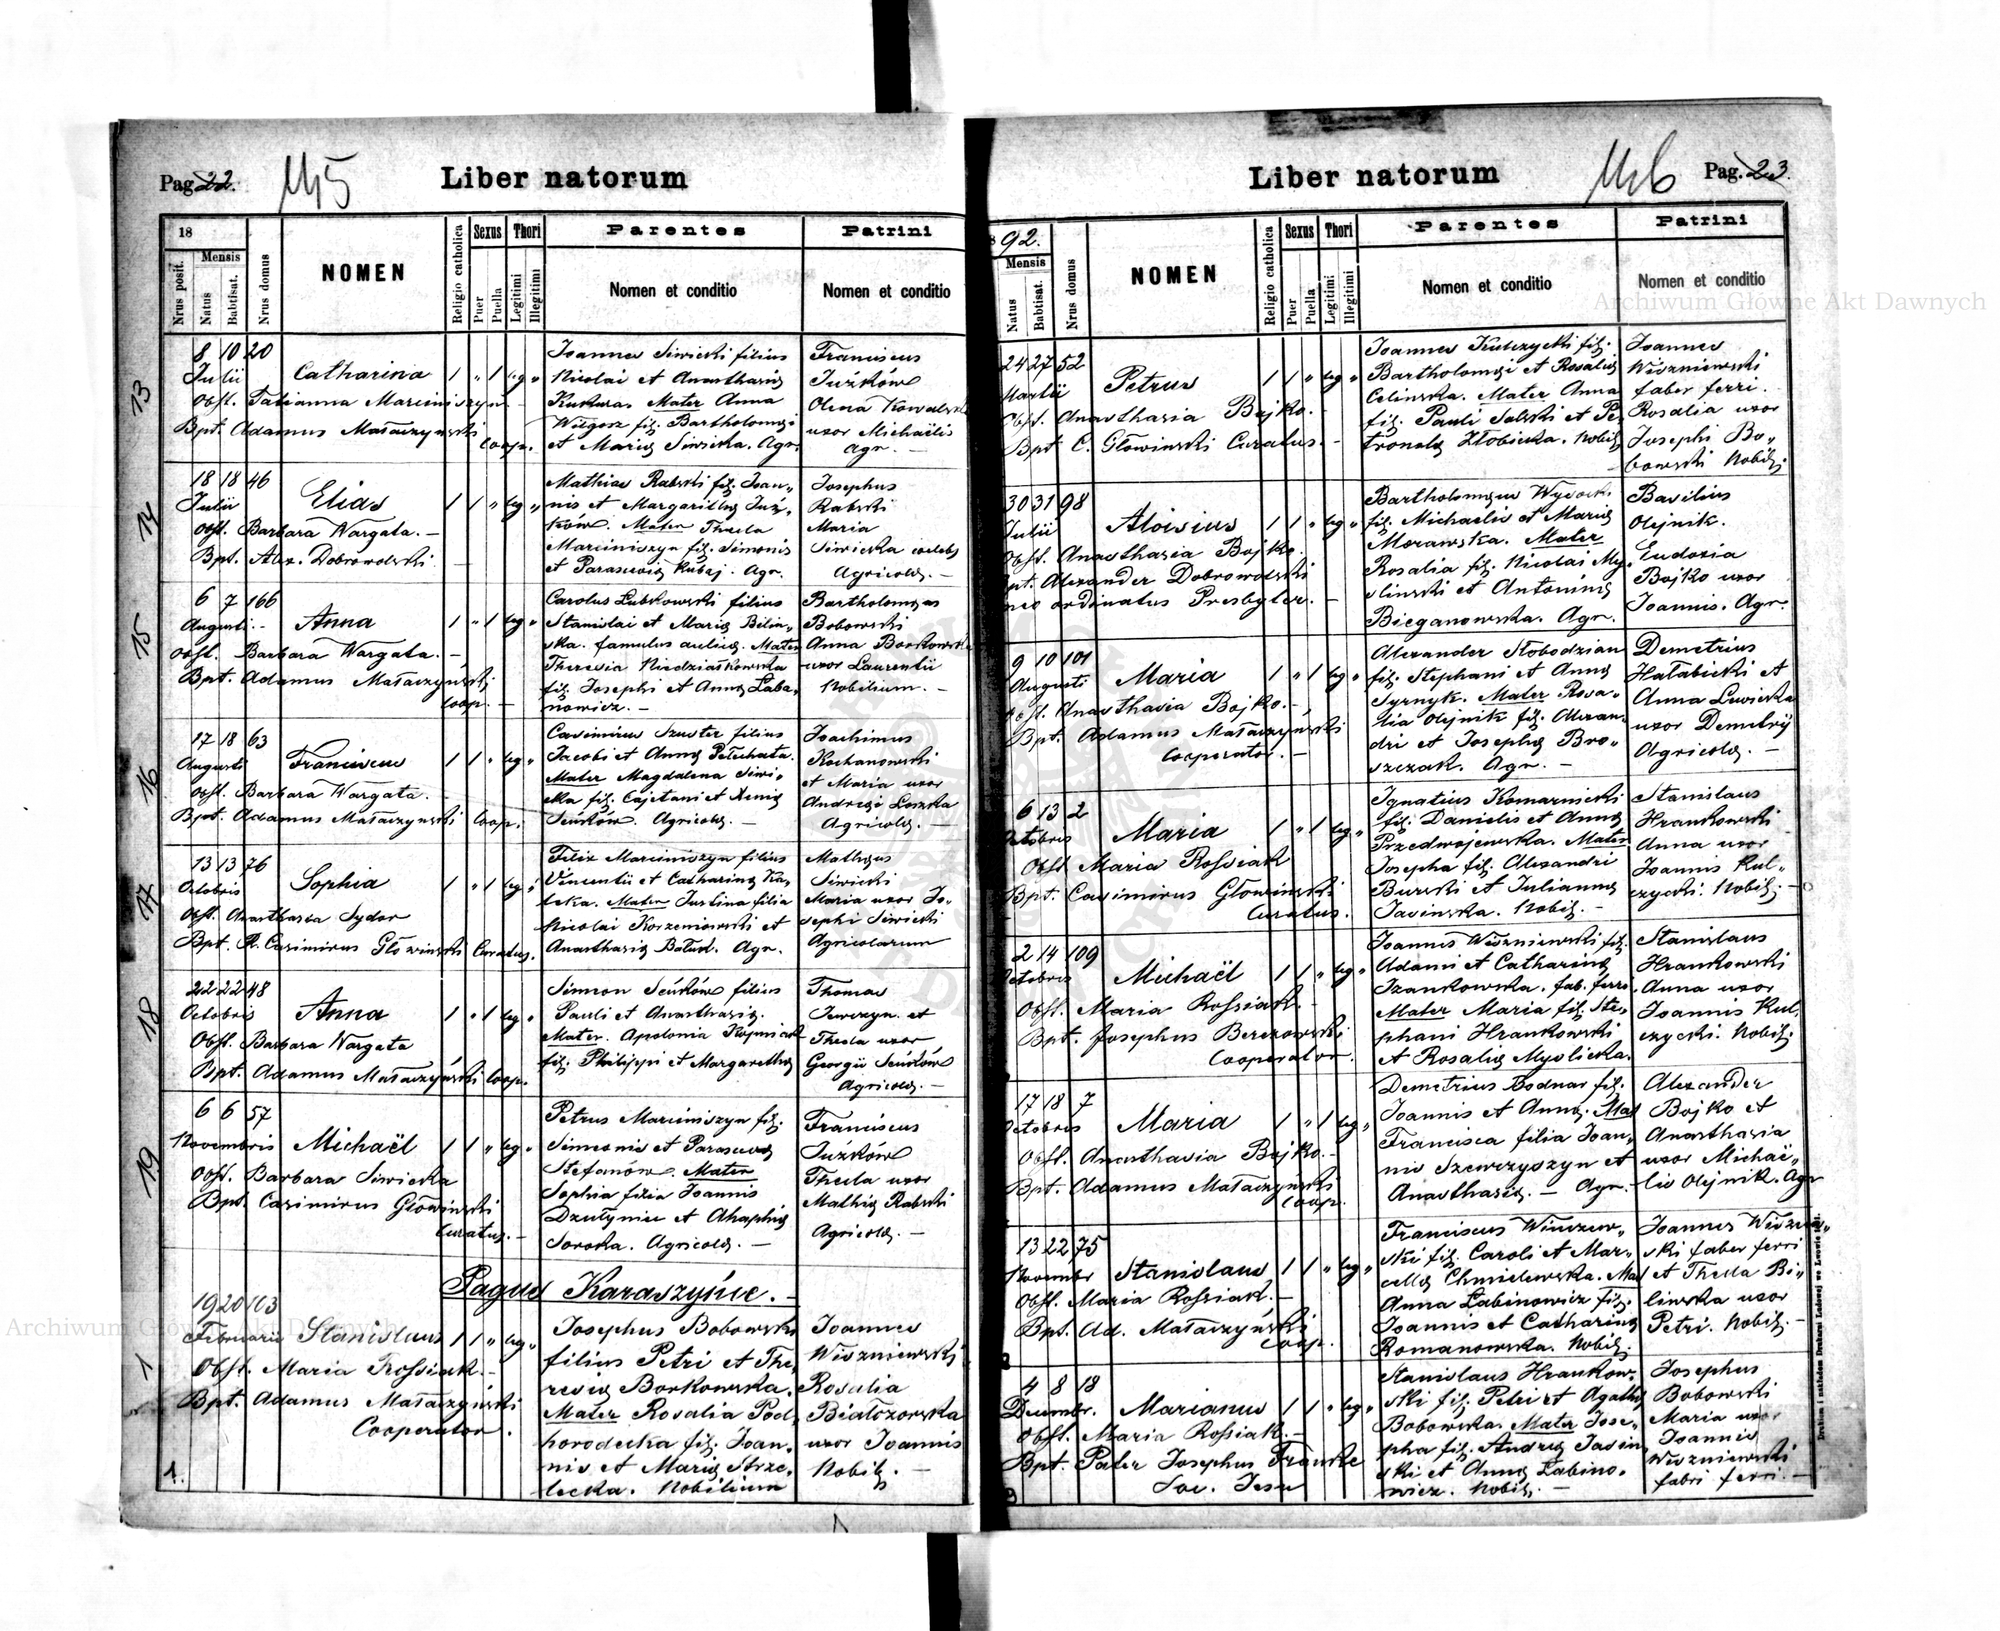 Pag. 22.
145
Liber natorum
18
Nrus posit.
Mensis
Natus
Babtisat.
Nrus domus
NOMEN
Religio catholica
Sexus
Puer
Puella
Thori
Legitimi
Illegitimi
Parentes
Nomen et conditio
Patrini
Nomen et conditio
13
8 10 20
Julii
Catharina
1 " 1 leg "
Obst. Tatianna Marciniszyn. -
Bpt. Adamus Mataczyński
Coop.
Joannes Siwicki filius
Nicolai et Anasthasię
Kukuras. Mater Anna
Wilgosz fil. Bartholomęi
et Marię Siwicka. Agr.
Franciscus
Juźków
Olena Kowalska
uxor Michaëlis
Agr. -
14
18 18 46
Julii
Elias
1 1 " leg "
Obst. Barbara Wargata. -
Bpt. Alex. Dobrowolski. -
Mathias Rabski fil. Joan„
nis et Margarithę Juź„
ków. Mater Thecla
Marciniszyn fil. Simonis
et Parascevię Kubaj. Agr.
Josephus
Rabski
Maria
Siwicka coelebs
Agricolę. -
15
6 7 166
Augusti. -
Anna
1 " 1 leg "
Obst. Barbara Wargata. -
Bpt. Adamus Mataczyński
Coop. -
Carolus Lubkowski filius
Stanislai et Marię Bilin„
ska. famulus aulicus. Mater
Theresia Niedziałkowska
fil. Josephi et Annę Łaba„
nowicz. -
Bartholomęus
Bobowski
Anna Borkowska
uxor Laurentii
Nobilium. -
16
17 18 63
Augusti
Franciscus
1 1 " leg "
Obst. Barbara Wargata. -
Bpt. Adamus Mataczyński Coop.
Casimirus Szuster filius
Jacobi et Annę Petechata.
Mater Magdalena Siwi„
cka fil. Cajetani et Xenię
Seńków. Agricolę. -
Joachimus
Kochanowski
et Maria uxor
Andreęi Loszka
Agricolę. -
17
13 13 76
Octobris
Sophia
1 " 1 leg "
Obst. Anasthasia Sydor
Bpt. R. Casimirus Głowiński Curatus.
Felix Marciniszyn filius
Vincentii et Catharinę Ka„
Mater Justina filia
Nicolai Korzeniowski et
Anasthasię Batuch. Agr.
Mathęus
Siwicki
Maria uxor Jo„
sephi Siwicki
Agricolarum
18
22 22 48
Octobris
Anna
1 " 1 leg "
Obst. Barbara Wargata
Bpt. Adamus Mataczyński Coop.
Simeon Seńków filius
Pauli et Anasthasię.
Mater Apolonia
fil. Philippi et Margarethę
Thomas
Szewczyn. et
Thecla uxor
Georgii Seńków
Agricolę. -
19
6 6 57
Novembris
Michaël
1 1 " leg "
Obst. Barbara Siwicka
Bpt. Casimirus Głowiński
Curatus. -
Petrus Marciniszyn fil.
Simeonis et Parascevę
Stefanów. Mater
Sophia filia Joannis
Dzutyniec et Ahaphię
Soroka. Agricolę. -
Franciscus
Juźków
Thecla uxor
Mathię Rabski
Agricolę. -
Pagus Karaszyńce. -
1
19 20 163
Februarii
Stanislaus
1 1 " leg "
Obst. Maria Rossiak. -
Bpt. Adamus Mataczyński
Cooperator.
Josephus Bobowski
filius Petri et The„
resię Borkowska.
Mater Rosalia Pod„
horodecka fil. Joan„
nis et Marię Strze„
lecka. Nobilium
Joannes
Wiszniewski
Rosalia
Białozowska
uxor Joannis
Nobil. -
1.
Liber natorum
146
Pag. 23.
892.
Mensis
Natus
Babtisat.
Nrus domus
NOMEN
Religio catholica
Sexus
Puer
Puella
Thori
Legitimi
Illegitimi
Parentes
Nomen et conditio
Patrini
Nomen et conditio
24 27 52
Martii
Petrus
1 1 " leg "
Obst. Anasthasia Bojko. -
Bpt C. Głowiński Curatus. -
Joannes Kulczycki fil.
Bartholomęi et Rosalię
Celinska. Mater Anna
fil. Pauli Salski et Pe„
tronelę Złobicka. Nobil.
Joannes
Wiszniewski
faber ferri.
Rosalia uxor
Josephi Bo„
bowski Nobil.
30 31 98
Julii
Aloisius
1 1 " leg "
Obst. Anasthasia Bojko.
Bpt. Alexander Dobrowolski
neo ordinatus Presbyter. -
Bartholomęus Wysocki
fil. Michaëlis et Marię
Morawska. Mater
Rosalia fil. Nicolai My„
slinski et Antoninę
Bieganowska. Agr.
Basilius
Olejnik.
Eudoxia
Bojko uxor
Joannis. Agr.
9 10 101
Augusti
Maria
1 " 1 leg "
Obst. Anasthasia Bojko. -
Bpt. Adamus Mataczyński
Cooperator. -
Alexander Słobodzian
fil. Stephani et Annę
Syrnyk. Mater Rosa„
lia Olejnik fil. Alexan„
dri et Josephę Bro„
szczak. Agr. -
Demetrius
Hałabicki et
Anna Lewicka
uxor Demetrij
Agricolę. -
6 13 2
Octobris
Maria
1 " 1 leg "
Obst Maria Rossiak
Bpt. Casimirus Głowiński
Curatus.
Ignatius Komarnicki
fil. Danielis et Annę
Przedwojewska. Mater
Josepha fil. Alexandri
Burski et Juliannę
Jasinska. Nobil. -
Stanislaus
Hrankowski
Anna uxor
Joannis Kul„
czycki. Nobil. -
2 14 109
Octobris
Michaël
1 1 " leg "
Obst. Maria Rossiak. -
Bpt. Josephus Berezowski
Cooperator.
Joannes Wiszniewski fil.
Adami et Catharinę
Szankowska. fab. ferri.
Mater Maria fil. Ste„
phani Hrankowski
et Rosalię Myslicka.
Stanislaus
Hrankowski
Anna uxor
Joannis Kul„
czycki. Nobil.
17 18 7
Octobris
Maria
1 " 1 leg "
Obst. Anasthasia Bojko. -
Bpt. Adamus Mataczyński
Coop.
Demetrius Bodnar fil.
Joannis et Annę. Mat
Francisca filia Joan„
nis Szewczyszyn et
Anasthasię. - Agr. -
Alexander
Bojko et
Anasthasia
uxor Michaë„
lis Olejnik. Agr
13 22 75
Novembr
Stanislaus
1 1 " leg "
Obst. Maria Rossiak. -
Bpt. Ad. Mataczyński
Coop.
Franciscus Winczew„
ski fil. Caroli et Mar„
cellę Chmielewska. Mat
Anna Łabinowicz fil.
Joannis et Catharinę
Romanowska. Nobil.
Joannes Wisznie„
ski faber ferri
et Thecla Bi„
linska uxor
Petri. Nobil. -
4 8 18
Decembr.
Marianus
1 1 " leg "
Obst. Maria Rossiak. -
Bpt. Pater Josephus Francke
Soc. Jesu
Stanislaus Hrankow„
ski fil. Petri et Agathę
Bobowska. Mater Jose„
pha fil. Andręę Jasin„
ski et Annę Łabino„
wicz. Nobil. -
Josephus
Bobowski
Maria uxor
Joannis
Wiszniewski
fabri ferri. -
Archiwum Główne Akt Dawnych
Archiwum Główne Akt Dawnych